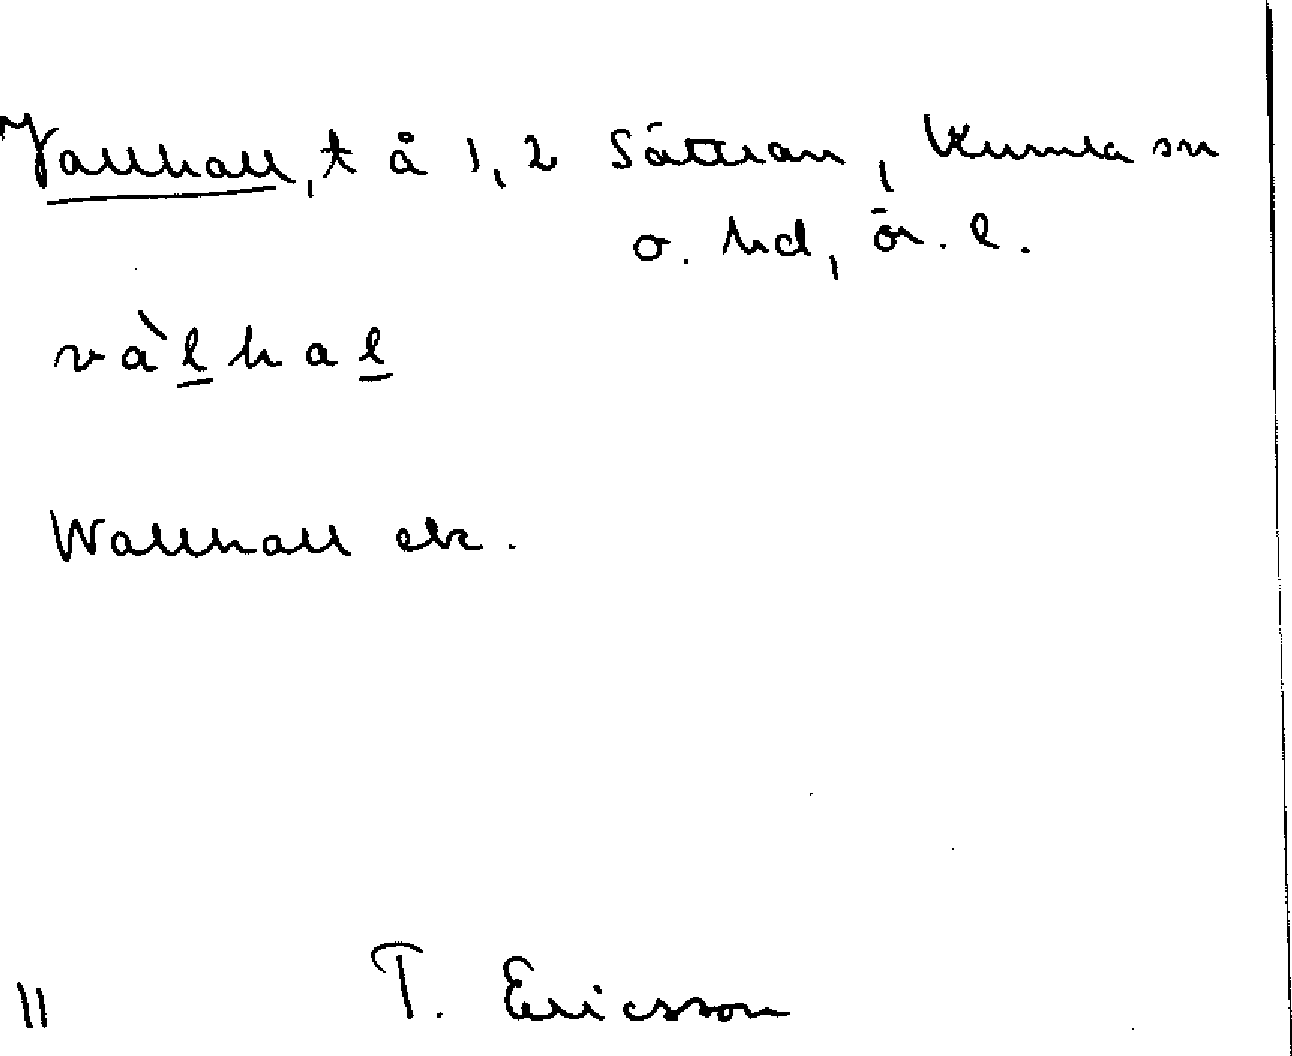 Vallhall, t å 1, 2 Sättran, Kumla sn
o. hd, ör. l.
vàl̲hal̲
Wallhall ek.
11 T. Ericsson